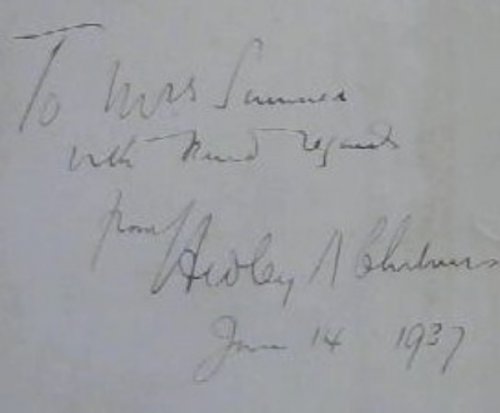 To Mrs Sumner
with kind regards
from Hedley A Chalmers
June 14 1937